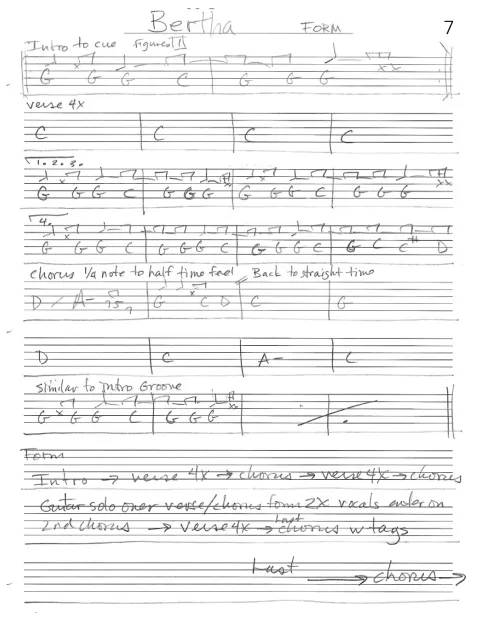 Bertha FORM 7
Intro to cue figure 11
G G G C G G G
verse 4x
C C C C
1. 2. 3.
G G G C G G G G G G C G G G
4.
G G G C G G G C G G G C G C C D
chorus 1/4 note to half time feel Back to straight time
D / A- G C D C G
D C A- C
similar to intro Groove
G G G C G G G
Form
Intro → verse 4x → chorus → verse 4x → chorus
Guitar solo over verse/chorus form 2x vocals enter on
2nd chorus → verse 4x → Last chorus w tags
Last → chorus →